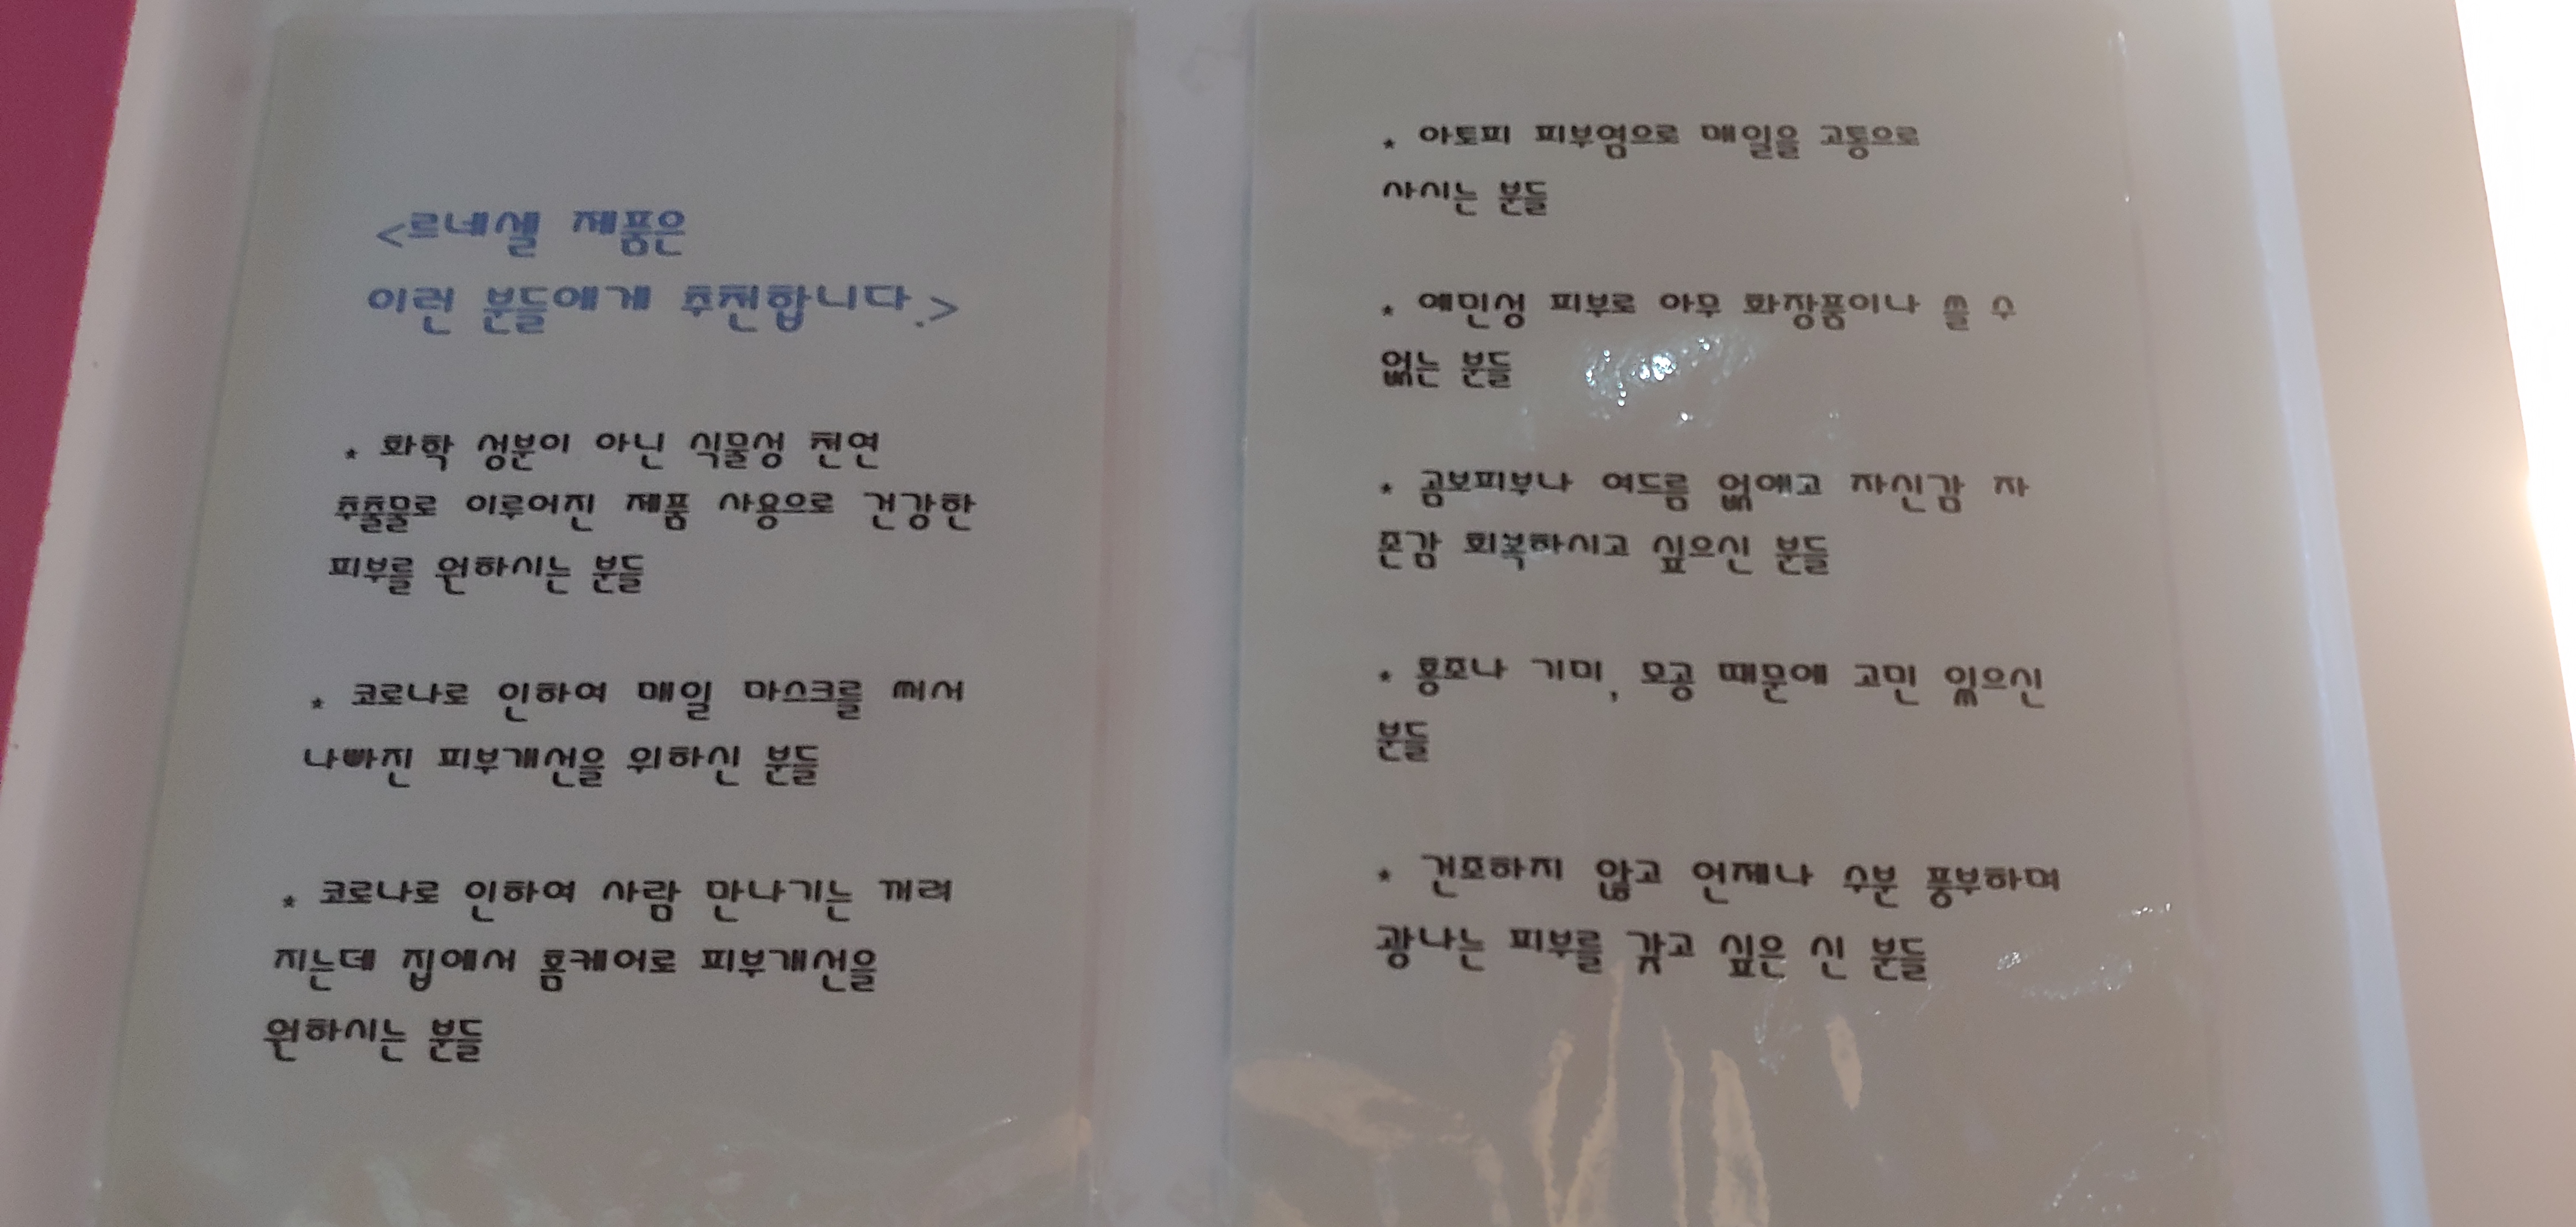 <르네셀 제품은
이런 분들에게 추천합니다.>
* 화학 성분이 아닌 식물성 천연
추출물로 이루어진 제품 사용으로 건강한
피부를 원하시는 분들
* 코로나로 인하여 매일 마스크를 써서
나빠진 피부개선을 위하신 분들
* 코로나로 인하여 사람 만나기는 꺼려
지는데 집에서 홈케어로 피부개선을
원하시는 분들
* 아토피 피부염으로 매일을 고통으로
사시는 분들
* 예민성 피부로 아무 화장품이나 쓸 수
없는 분들
* 곰보피부나 여드름 없애고 자신감 자
존감 회복하시고 싶으신 분들
* 홍조나 기미, 모공 때문에 고민 있으신
분들
* 건조하지 않고 언제나 수분 풍부하며
광나는 피부를 갖고 싶은 신 분들